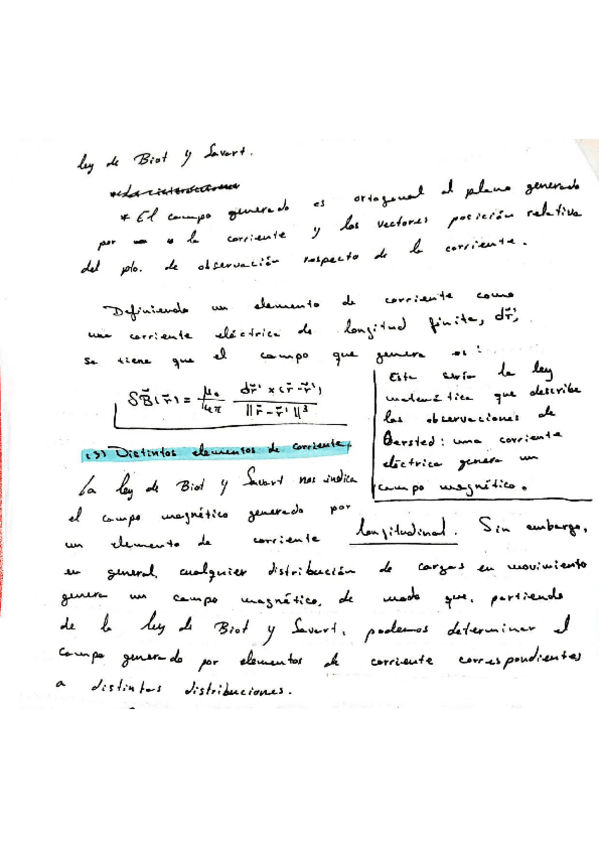 ley de Biot y Savart.
* El campo generado es ortogonal al plano generado
por la corriente y los vectores posición relativa
del pto. de observación respecto de la corriente.
Definiendo un elemento de corriente como
una corriente eléctrica de longitud finita, dr̄',
se tiene que el campo que genera es:
δB̄(r̄) = μ₀/4π dr̄' × (r̄ - r̄') / ||r̄ - r̄'||³
Esta sería la ley
matemática que describe
las observaciones de
Oersted: una corriente
eléctrica genera un
campo magnético.
Distintos elementos de corriente
La ley de Biot y Savart nos indica
el campo magnético generado por
un elemento de corriente longitudinal. Sin embargo,
en general, cualquier distribución de cargas en movimiento
genera un campo magnético, de modo que, partiendo
de la ley de Biot y Savart, podemos determinar el
campo generado por elementos de corriente correspondientes
a distintas distribuciones.